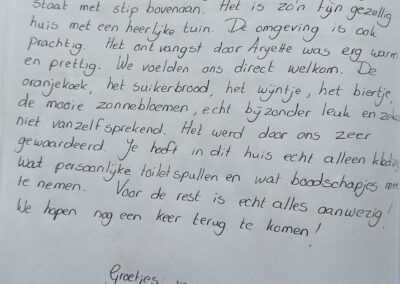 staat met stip bovenaan. Het is zo'n fijn gezellig
huis met een heerlijke tuin. De omgeving is ook
prachtig. Het ontvangst door Aryette was erg warm
en prettig. We voelden ons direct welkom. De
oranjekoek, het suikerbrood, het wijntje, het biertje,
de mooie zonnebloemen, echt bijzonder leuk en zeker
niet vanzelfsprekend. Het werd door ons zeer
gewaardeerd. Je hoeft in dit huis echt alleen
wat persoonlijke toiletspullen en wat boodschapjes mee
te nemen. Voor de rest is echt alles aanwezig!
We hopen nog een keer terug te komen!
Groetjes